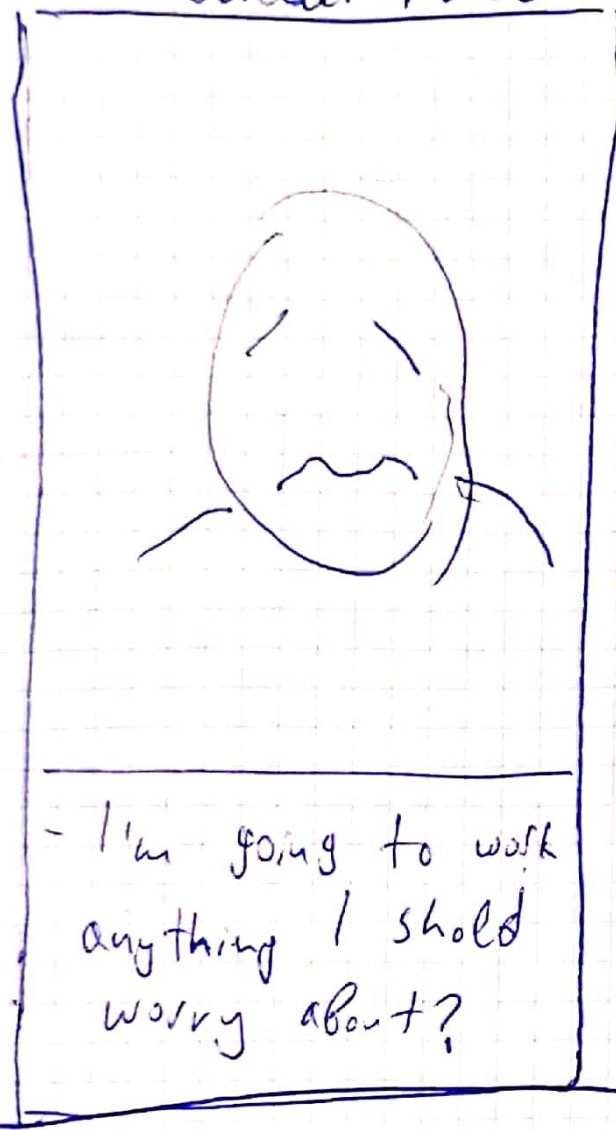 - I'm going to work
anything I shold
worry about?